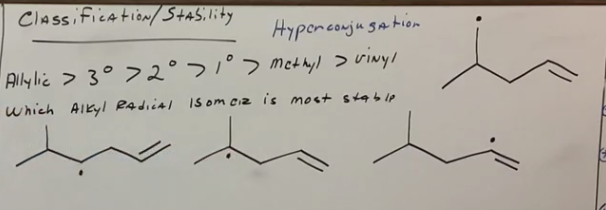 Classification/Stability
Hyperconjugation
Allylic > 3° > 2° > 1° > methyl > vinyl
Which Alkyl Radical Isomer is most stable